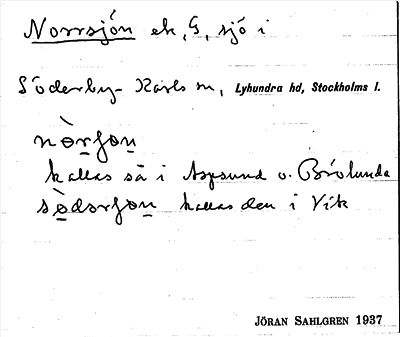 Norrsjön ek, G, sjö i
Söderby-Karls sn, Lyhundra hd, Stockholms l.
nòrʃon
kallas så i Aspsund o. Brölunda
sòdorʃon kallas den i Vik
JÖRAN SAHLGREN 1937